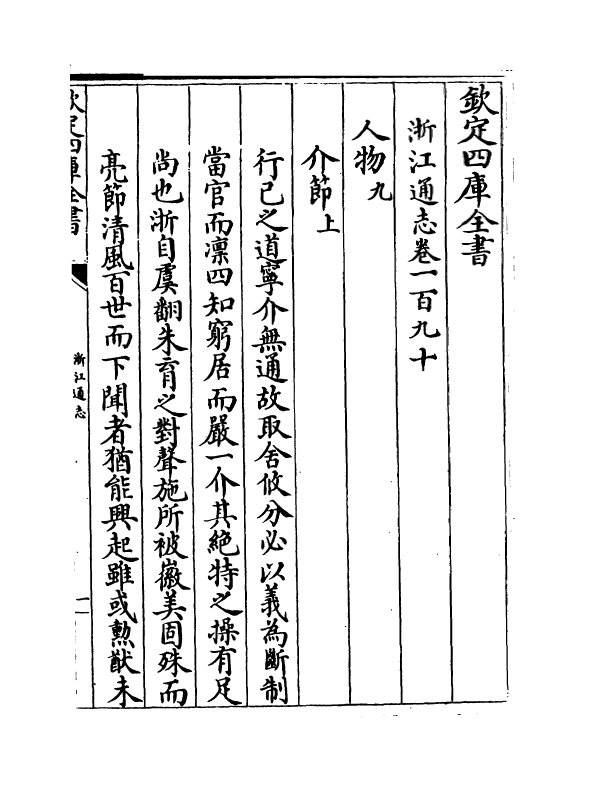 欽定四庫全書
浙江通志卷一百九十
人物九
介節上
行己之道寧介無通故取舍攸分必以義為斷制
當官而凜四知窮居而嚴一介其絶特之操有足
尚也浙自虞翻朱育之對聲施所被徽美固殊而
亮節清風百世而下聞者猶能興起雖或勲猷未
欽定四庫全書
浙江通志
一